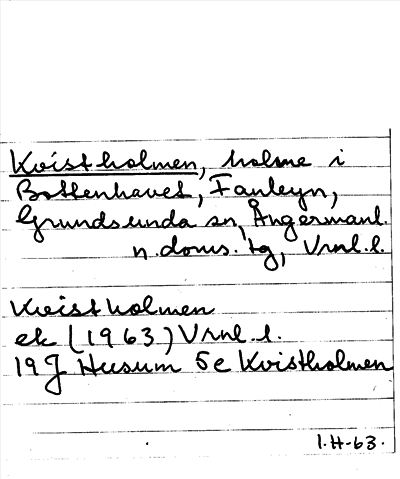 Kvistholmen, holme i
Bottenhavet, Fanleyn,
Grundsunda sn, Ångermanl.
n. doms. tg, Vrnl. l.
Kvistholmen
ek (1963) Vrnl. l.
19 J Husum 5e Kvistholmen
l. H-63.